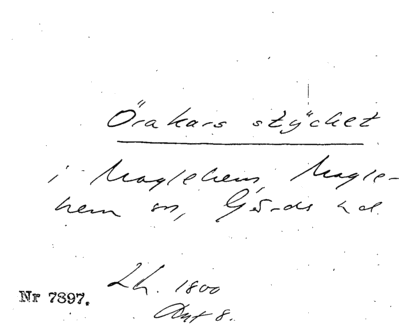 Örakars stycket
i Maglehem, Magle-
hem sn, Gärds hd.
Lh. 1800
Akt 8.
Nr 7897.